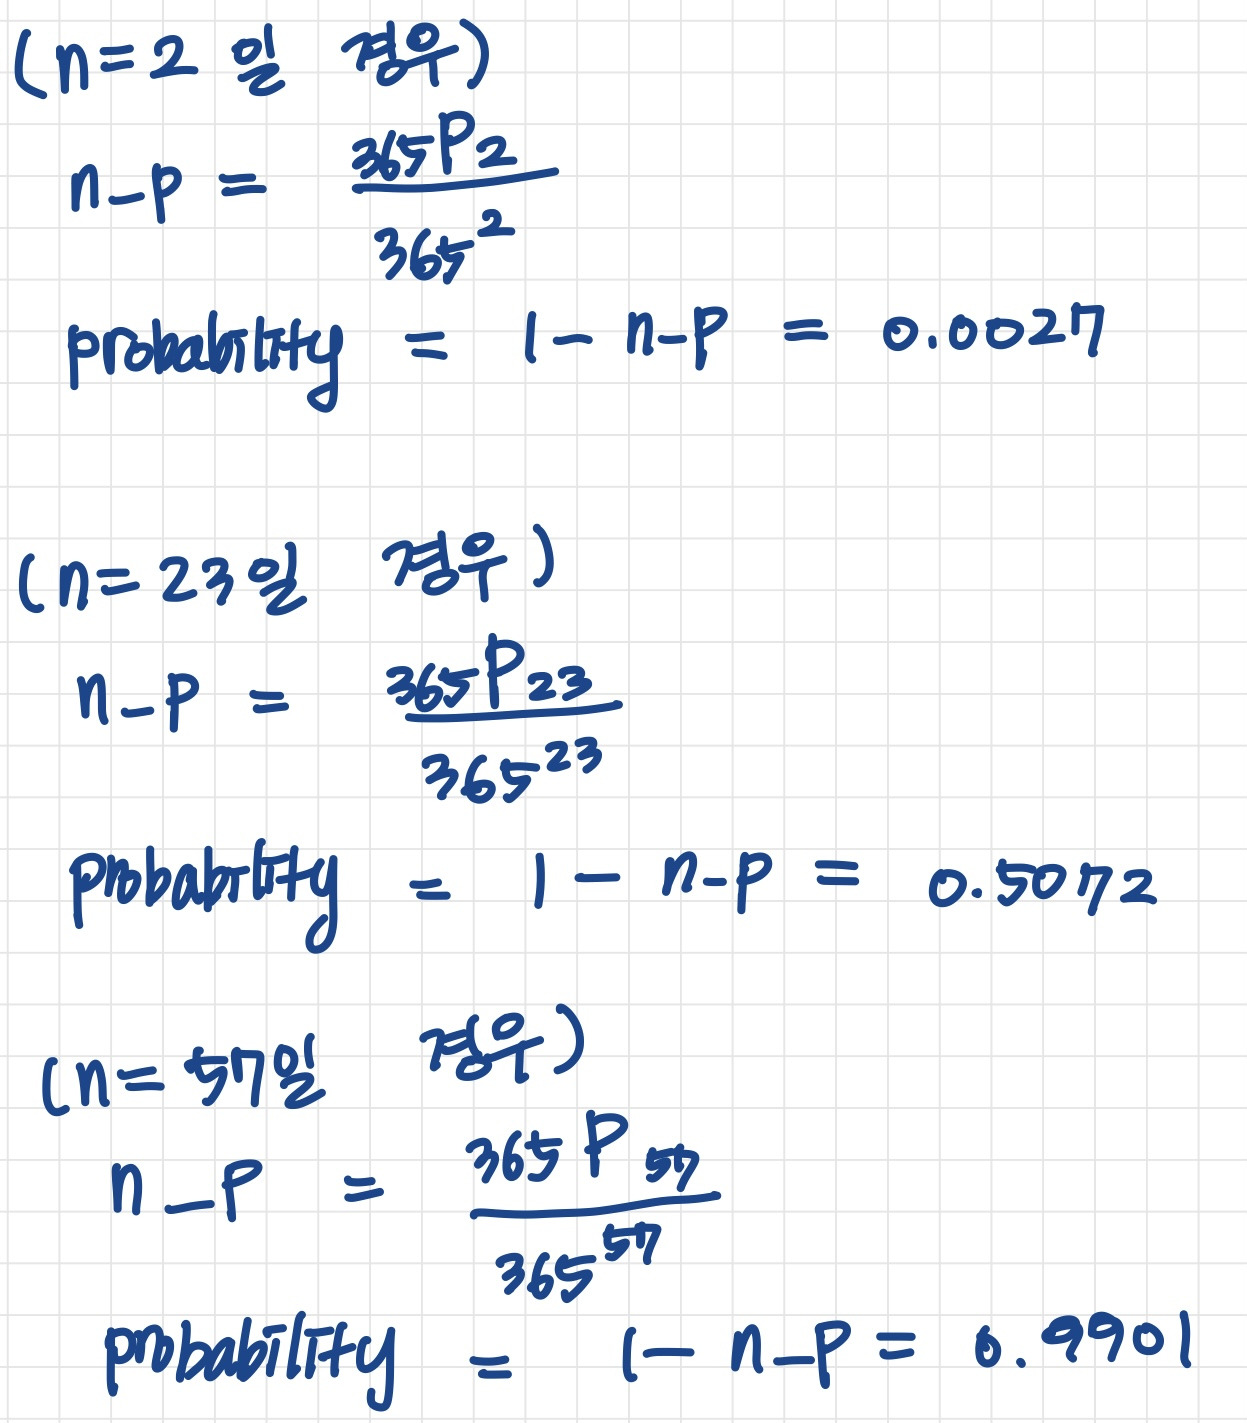 (n=2 일 경우)
n_p = 365P2 / 365^2
probability = 1 - n_p = 0.0027
(n=23일 경우)
n_p = 365P23 / 365^23
probability = 1 - n_p = 0.5072
(n=57일 경우)
n_p = 365P57 / 365^57
probability = 1 - n_p = 0.9901